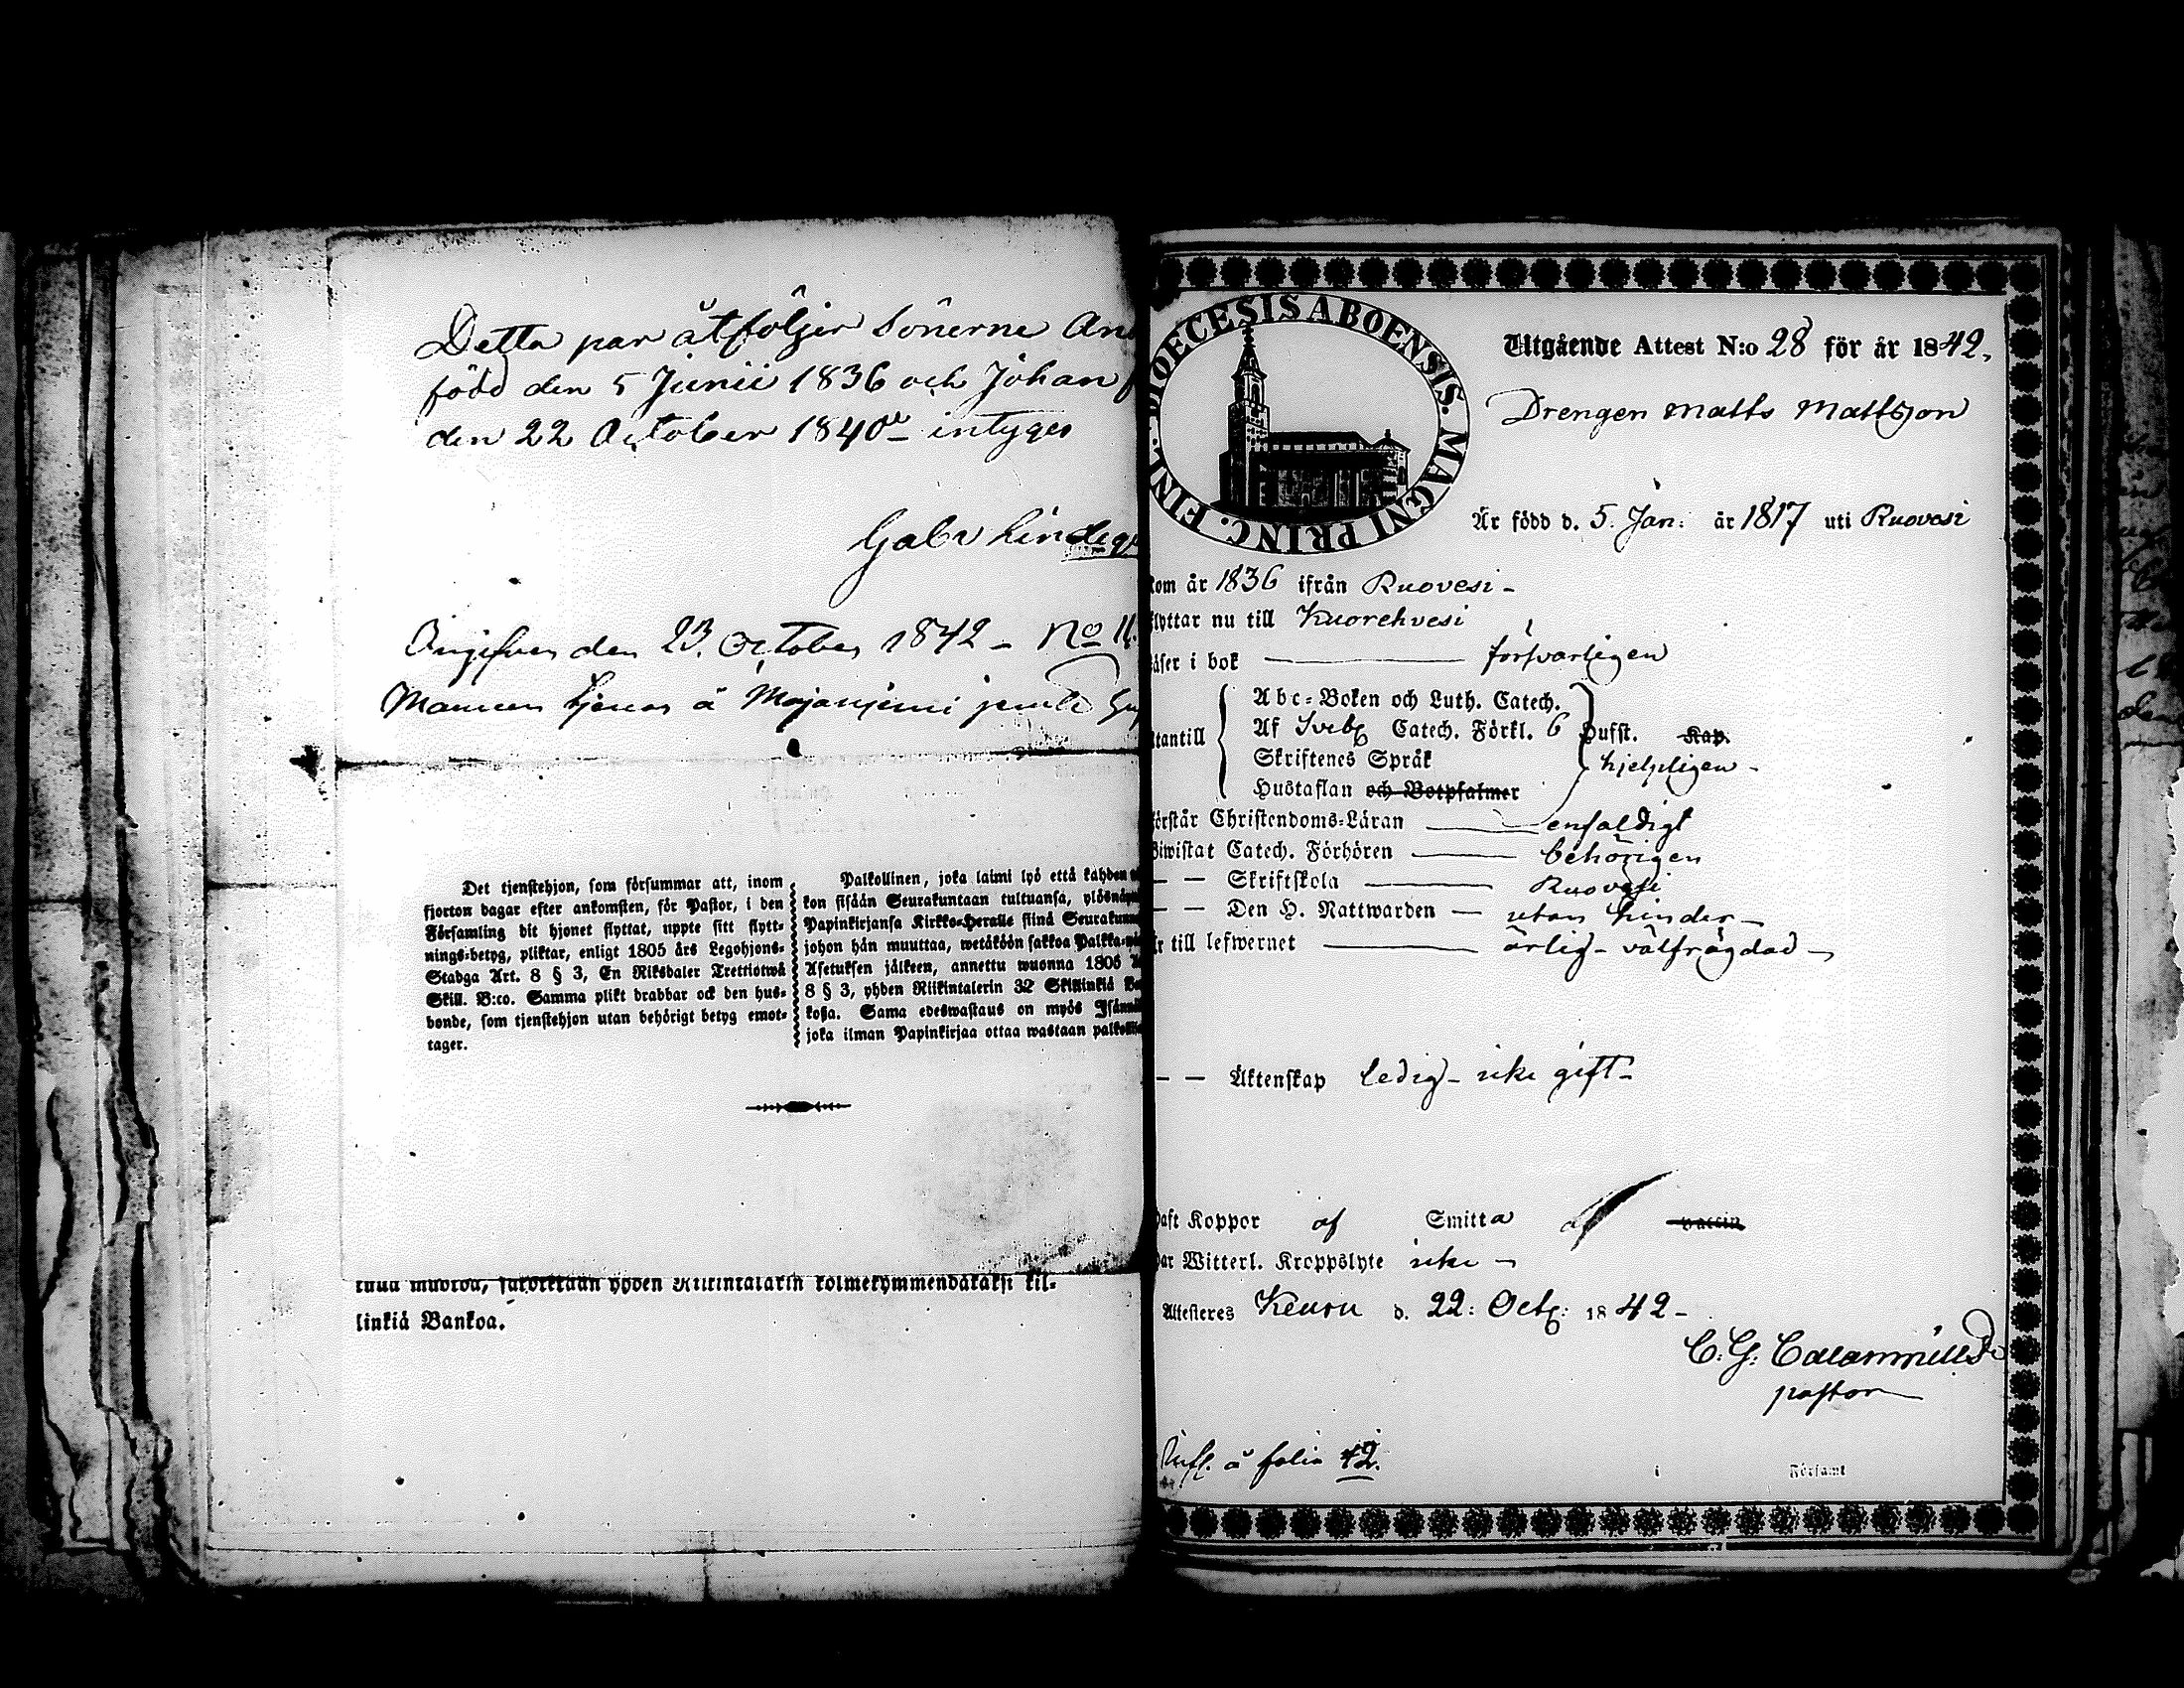 Detta par åtföljer Sönerne An
född den 5 Junii 1836 och Johan f
den 22 October 1840 intygas
Gabr Lindeqv
Angifven den 23. October 1842 - No 11.
Mannen tjenar å Majaniemi
Det tjenstehjon, som försummar att, inom
fjorton dagar efter ankomsten, för Pastor, i den
Församling dit hjonet flyttat, uppte sitt flytt-
nings-betyg, pliktar, enligt 1805 års Legohjons-
Stadga Art. 8 § 3, En Riksdaler Trettiotwå
Skill. B:co. Samma plikt drabbar ock den hus-
bonde, som tjenstehjon utan behörigt betyg emot-
tager.
Palkollinen, joka laimi lyö että kahden
kon sisään Seurakuntaan tultuansa, ylösnäy
Papinkirjansa Kirkko-Heralle siinä Seurakun
johon hän muuttaa, wetäköön sakkoa Palkka-
Asetuksen jälkeen, annettu wuonna 1805
8 § 3, yhden Riikintalerin 32 Skillinkiä
koßa. Sama edeswastaus on myös Isänn
joka ilman Papinkirjaa ottaa wastaan palkolli
yhden Riikintalarin kolmekymmendäkaksi kil-
linkiä Bankoa.
DIOECESIS ABOENSIS. MAGNI PRINC. FINL.
Utgående Attest N:o 28 för år 1842.
Drengen Matts Mattsson
Är född d. 5. Jan: år 1817 uti Ruovesi
Kom år 1836 ifrån Ruovesi -
flyttar nu till Kuorehvesi
läser i bok försvarligen
Abc-Boken och Luth. Catech.
utantill Af Sveb. Catech. Förkl. 6 Hufst. Kap.
Skriftenes Språk hjelpligen -
Hustaflan och Botpsalmer
förstår Christendoms-Läran enfaldigt
Biwistat Catech. Förhören behörigen
— — Skriftskola Ruovesi
— — Den H. Nattwarden — utan hinder -
Är till lefwernet ärlig - välfrägdad -
— — Äktenskap ledig - icke gift -
haft Koppor af Smitta af vaccin
har Witterl. Kroppslyte icke -
Attesteres Keuru d. 22: Oct: 1842 -
C. G.
pastor
Infl. å folio 42.
i Församl